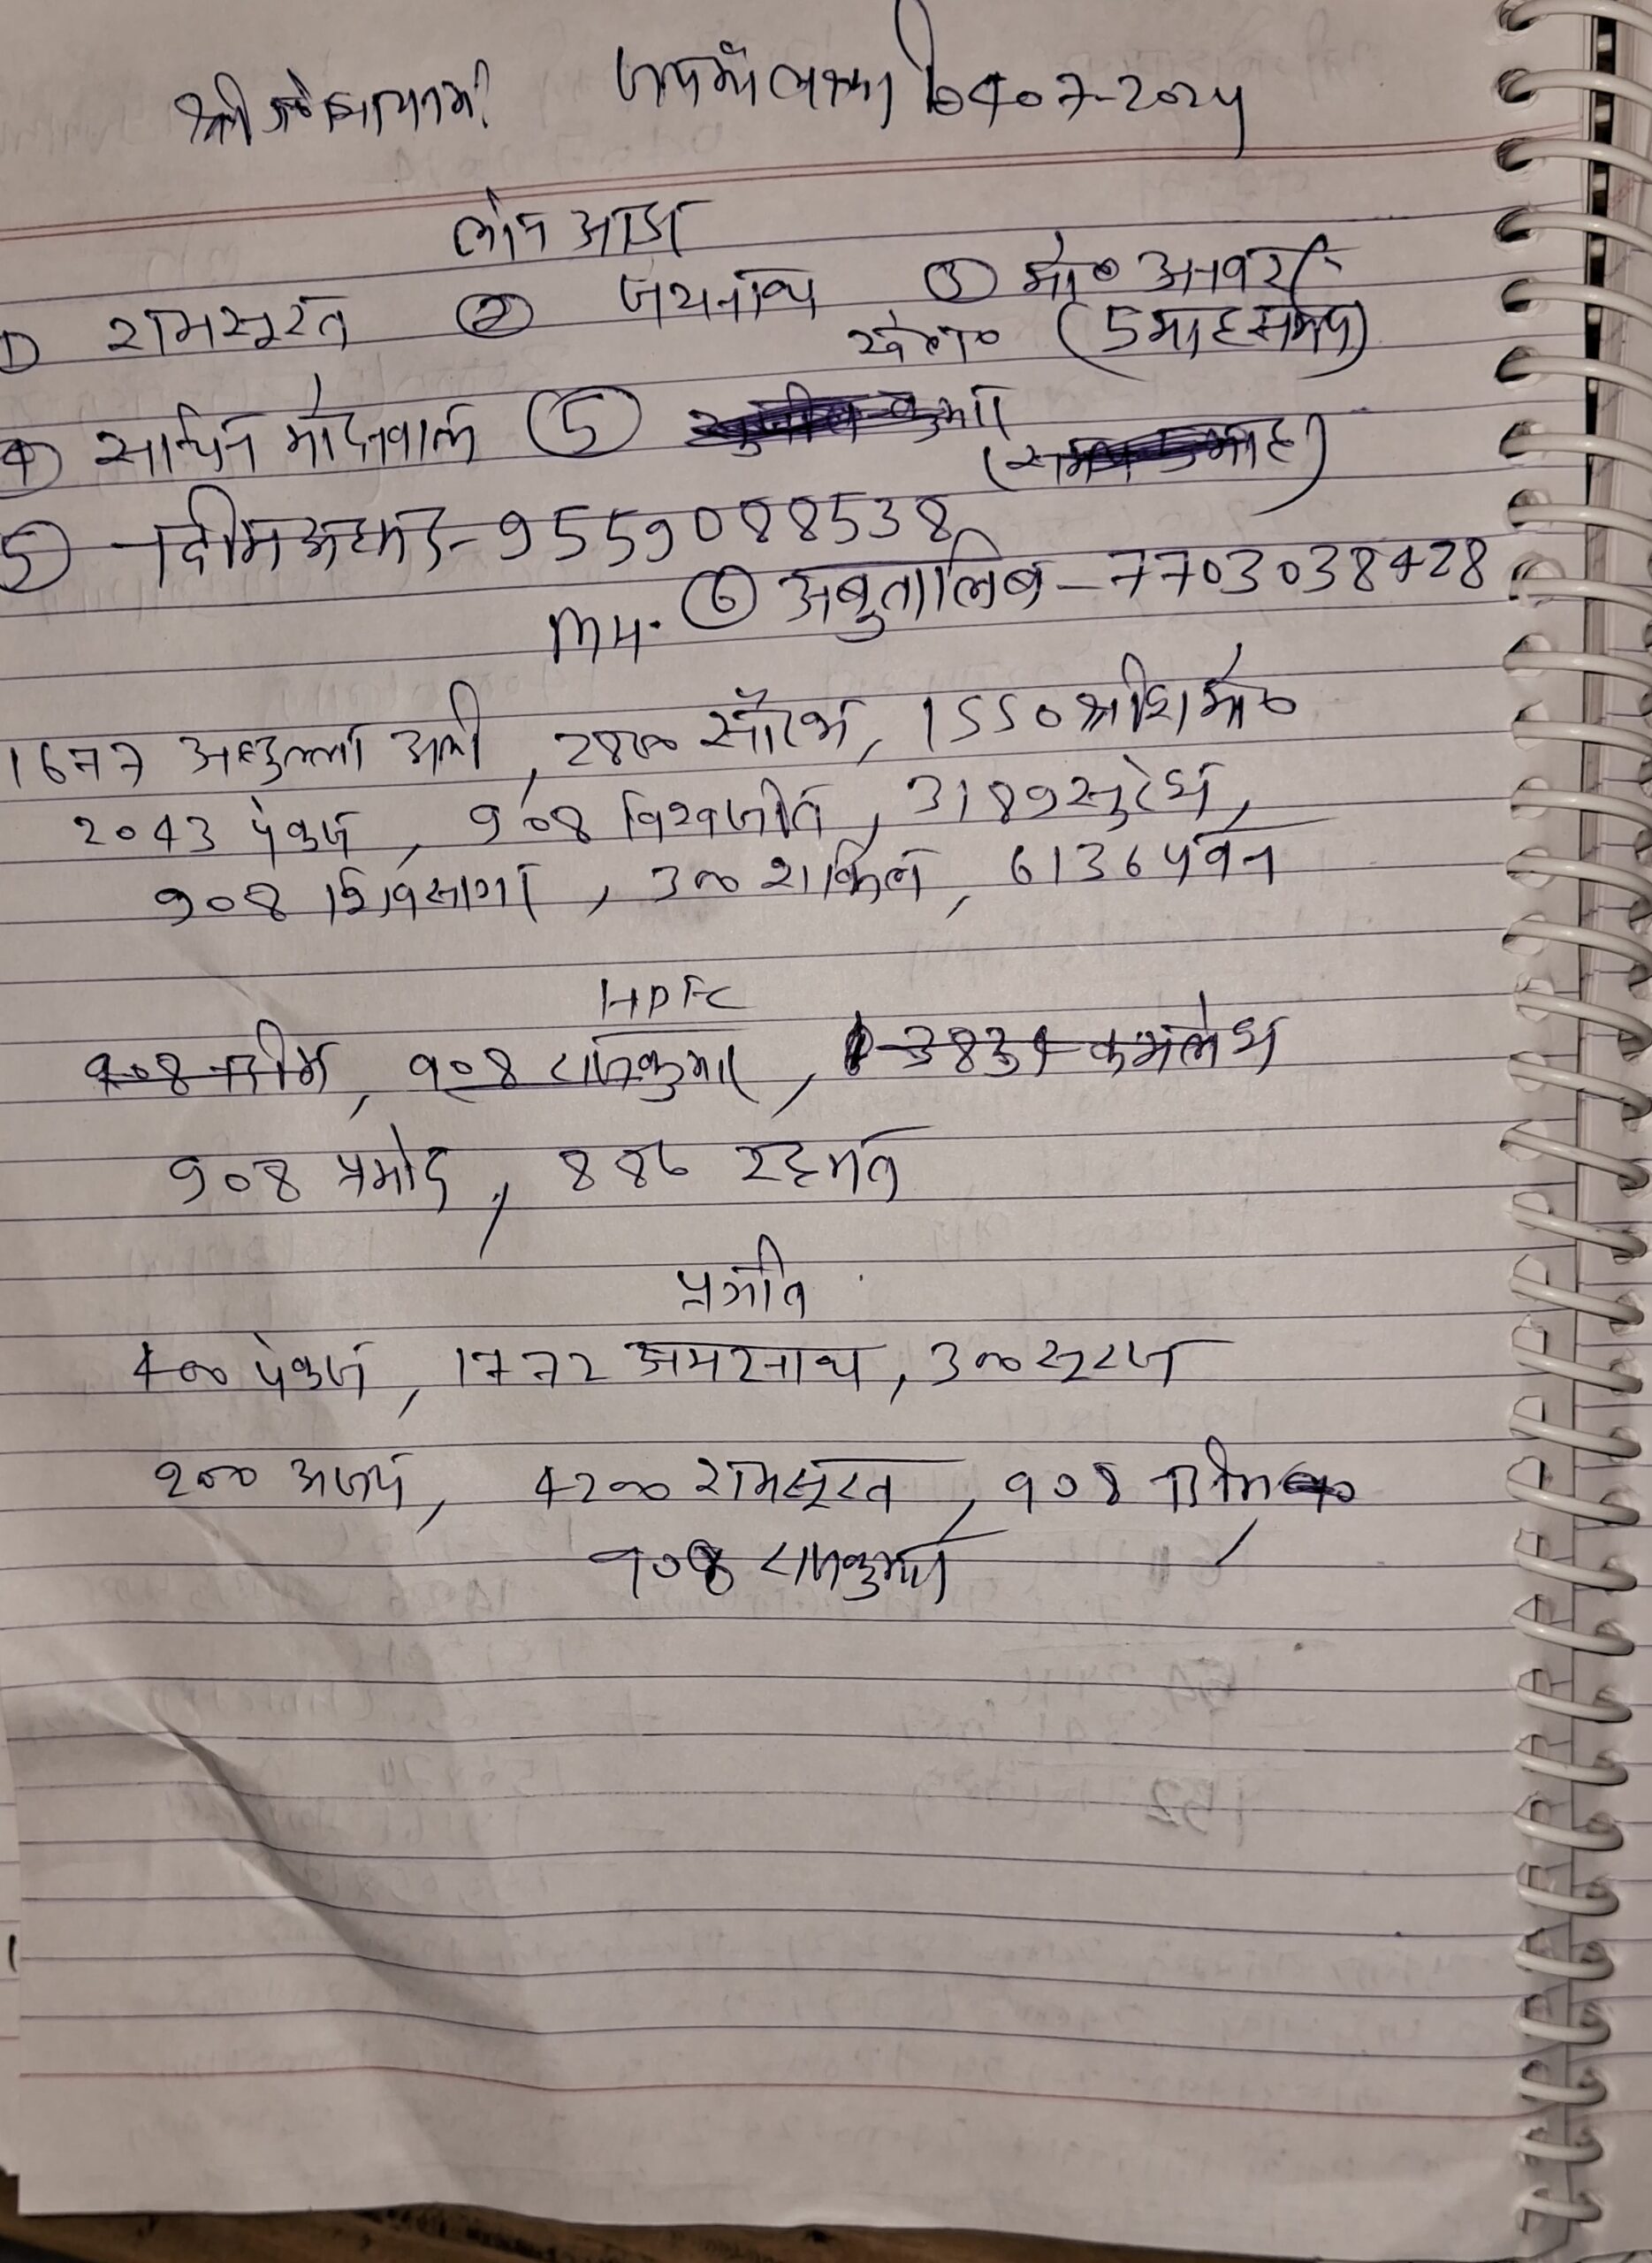 श्री गणेशाय नमः जय माँ लक्ष्मी 04-07-2024
लोन आज
① रामसूरत ② जयनाथ ③ मो० अनवर
(5 माह समय)
④ सचिन मोदनवाल ⑤ सुनील कुमार
5 नदीम अहमद - 9559088538
⑥ अबुतालिब - 7703038428
1677 अब्दुल्ला अली, 2800 सौरभ, 1550
2043 पंकज, 908 विश्वजीत, 3189 सुरेश,
908 शिवसागर, 300 शकिल, 6136 पवन
HDFC
908 नदीम, 908 राजकुमार, 3839 कमलेश
908 प्रमोद, 886 रहमत
प्रगति
400 पंकज, 1772 अमरनाथ, 300 सूरज
200 अजय, 4200 रामसूरत, 908 नदीम
908 राजकुमार